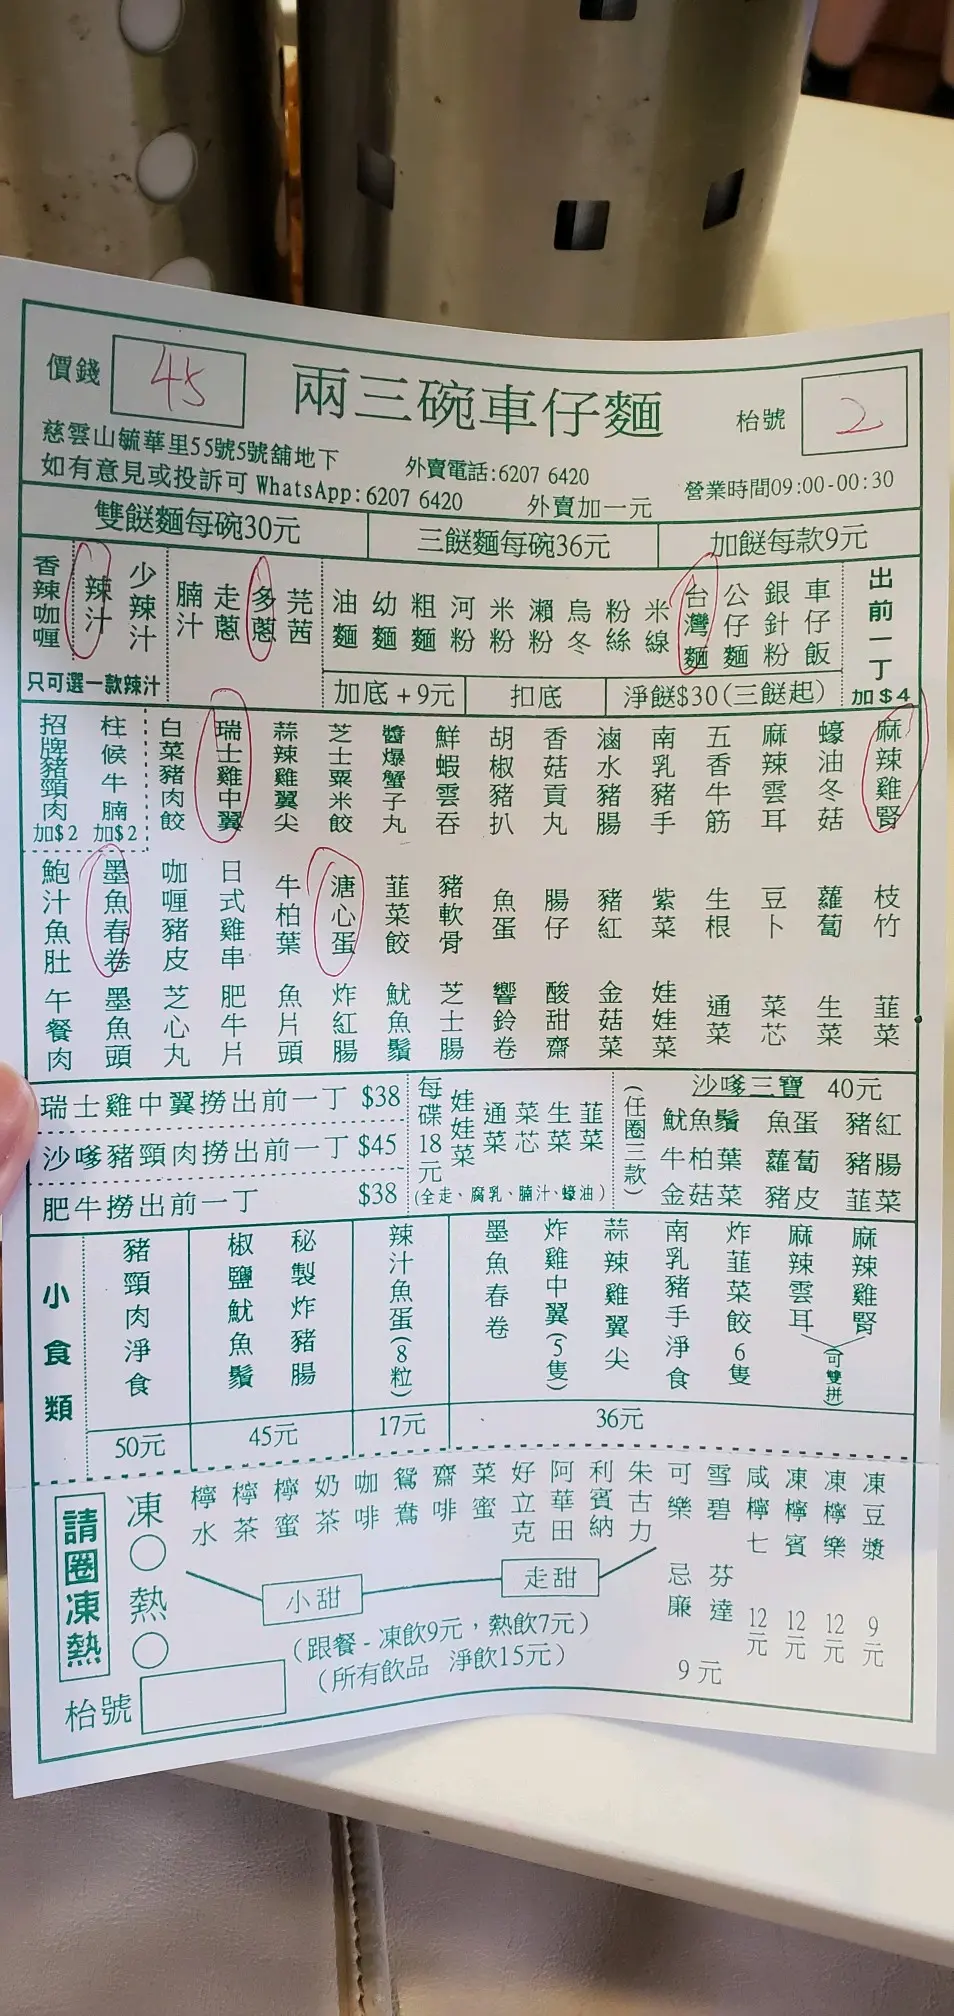 價錢 45
兩三碗車仔麵
枱號 2
慈雲山毓華里55號5號舖地下
外賣電話:6207 6420
如有意見或投訴可 WhatsApp:6207 6420
外賣加一元
營業時間09:00-00:30
雙餸麵每碗30元
三餸麵每碗36元
加餸每款9元
香辣咖喱
辣汁
少辣汁
只可選一款辣汁
腩汁
走蔥
多蔥
芫茜
油麵
幼麵
粗麵
河粉
米粉
瀨粉
烏冬
粉絲
米線
台灣麵
公仔麵
銀針粉
車仔飯
出前一丁
加$4
加底+9元
扣底
淨餸$30(三餸起)
招牌豬頸肉 加$2
柱候牛腩 加$2
白菜豬肉餃
瑞士雞中翼
蒜辣雞翼尖
芝士粟米餃
醬爆蟹子丸
鮮蝦雲吞
胡椒豬扒
香菇貢丸
滷水豬腸
南乳豬手
五香牛筋
麻辣雲耳
蠔油冬菇
麻辣雞腎
鮑汁魚肚
墨魚春卷
咖喱豬皮
日式雞串
牛柏葉
溏心蛋
韮菜餃
豬軟骨
魚蛋
腸仔
豬紅
紫菜
生根
豆卜
蘿蔔
枝竹
午餐肉
墨魚頭
芝心丸
肥牛片
魚片頭
炸紅腸
魷魚鬚
芝士腸
響鈴卷
酸甜齋
金菇菜
娃娃菜
通菜
菜芯
生菜
韮菜
瑞士雞中翼撈出前一丁 $38
沙嗲豬頸肉撈出前一丁 $45
肥牛撈出前一丁 $38
每碟18元
娃娃菜
通菜
菜芯
生菜
韮菜
(全走、腐乳、腩汁、蠔油)
(任圈三款)
沙嗲三寶 40元
魷魚鬚 魚蛋 豬紅
牛柏葉 蘿蔔 豬腸
金菇菜 豬皮 韮菜
小食類
豬頸肉淨食
50元
椒鹽魷魚鬚
秘製炸豬腸
45元
辣汁魚蛋(8粒)
17元
墨魚春卷
炸雞中翼(5隻)
蒜辣雞翼尖
南乳豬手淨食
炸韮菜餃6隻
麻辣雲耳
麻辣雞腎
(可雙拼)
36元
請圈凍熱
凍
熱
檸水
檸茶
檸蜜
奶茶
咖啡
鴛鴦
齋啡
菜蜜
好立克
阿華田
利賓納
朱古力
可樂
雪碧
忌廉
芬達
9元
咸檸七 12元
凍檸賓 12元
凍檸樂 12元
凍豆漿 9元
小甜
走甜
(跟餐 - 凍飲9元，熱飲7元)
(所有飲品 淨飲15元)
枱號